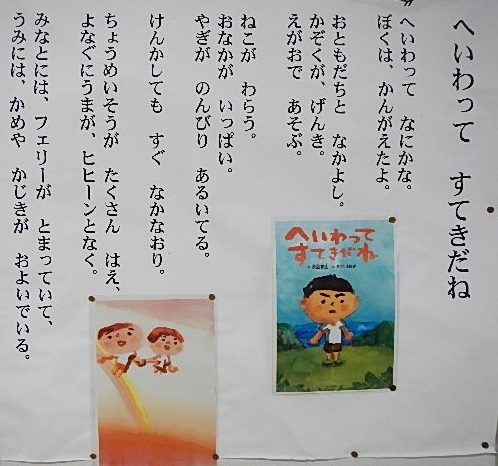 へいわって すてきだね
へいわって なにかな。
ぼくは、かんがえたよ。
おともだちと なかよし。
かぞくが、げんき。
えがおで あそぶ。
ねこが わらう。
おなかが いっぱい。
やぎが のんびり あるいてる。
けんかしても すぐ なかなおり。
ちょうめいそうが たくさん はえ、
よなぐにうまが、ヒヒーンとなく。
みなとには、フェリーが とまっていて、
うみには、かめや かじきが およいでいる。
へいわって
すてきだね